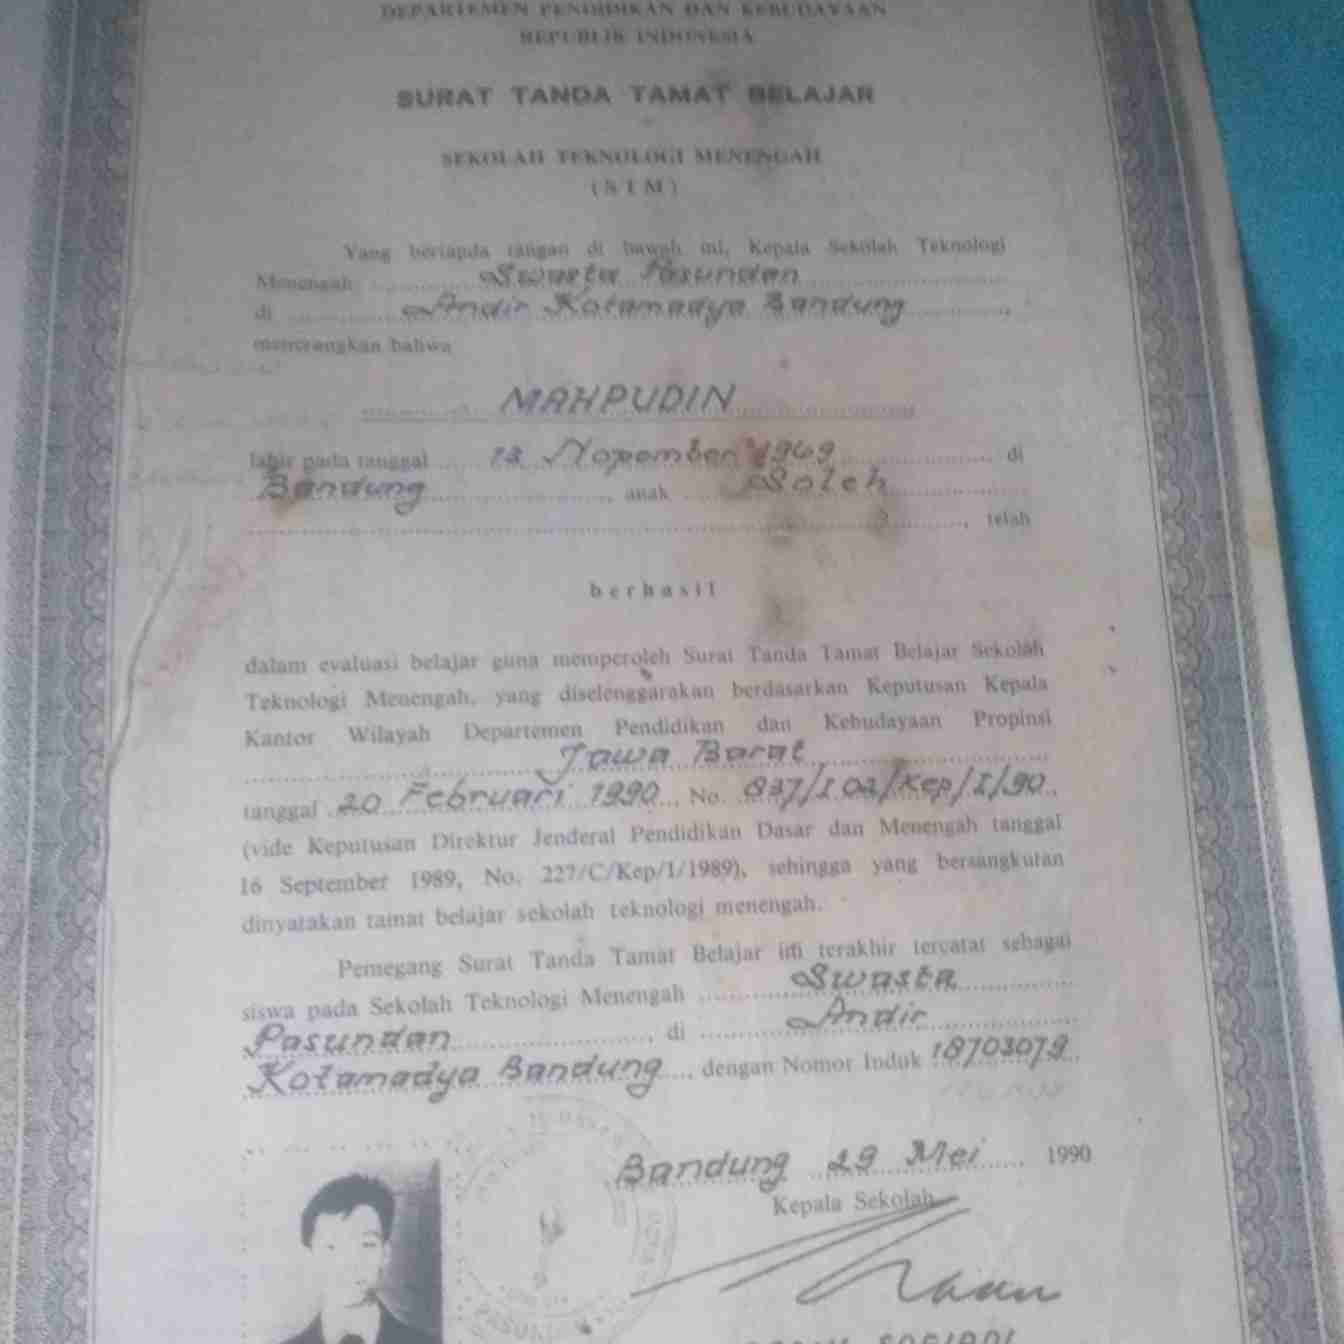 DEPARTEMEN PENDIDIKAN DAN KEBUDAYAAN
REPUBLIK INDONESIA
SURAT TANDA TAMAT BELAJAR
SEKOLAH TEKNOLOGI MENENGAH
(STM)
Yang bertanda tangan di bawah ini, Kepala Sekolah Teknologi
Menengah Swasta Pasundan
di Andir Kotamadya Bandung,
menerangkan bahwa
MAHPUDIN
lahir pada tanggal 12 Nopember 1969 di
Bandung, anak Soleh
, telah
berhasil
dalam evaluasi belajar guna memperoleh Surat Tanda Tamat Belajar Sekolah
Teknologi Menengah, yang diselenggarakan berdasarkan Keputusan Kepala
Kantor Wilayah Departemen Pendidikan dan Kebudayaan Propinsi
Jawa Barat
tanggal 20 Februari 1990 No. 837/I 02/Kep/I/90
(vide Keputusan Direktur Jenderal Pendidikan Dasar dan Menengah tanggal
16 September 1989, No. 227/C/Kep/I/1989), sehingga yang bersangkutan
dinyatakan tamat belajar sekolah teknologi menengah.
Pemegang Surat Tanda Tamat Belajar ini terakhir tercatat sebagai
siswa pada Sekolah Teknologi Menengah Swasta
Pasundan, di Andir
Kotamadya Bandung, dengan Nomor Induk 18703079
Bandung 29 Mei 1990
Kepala Sekolah